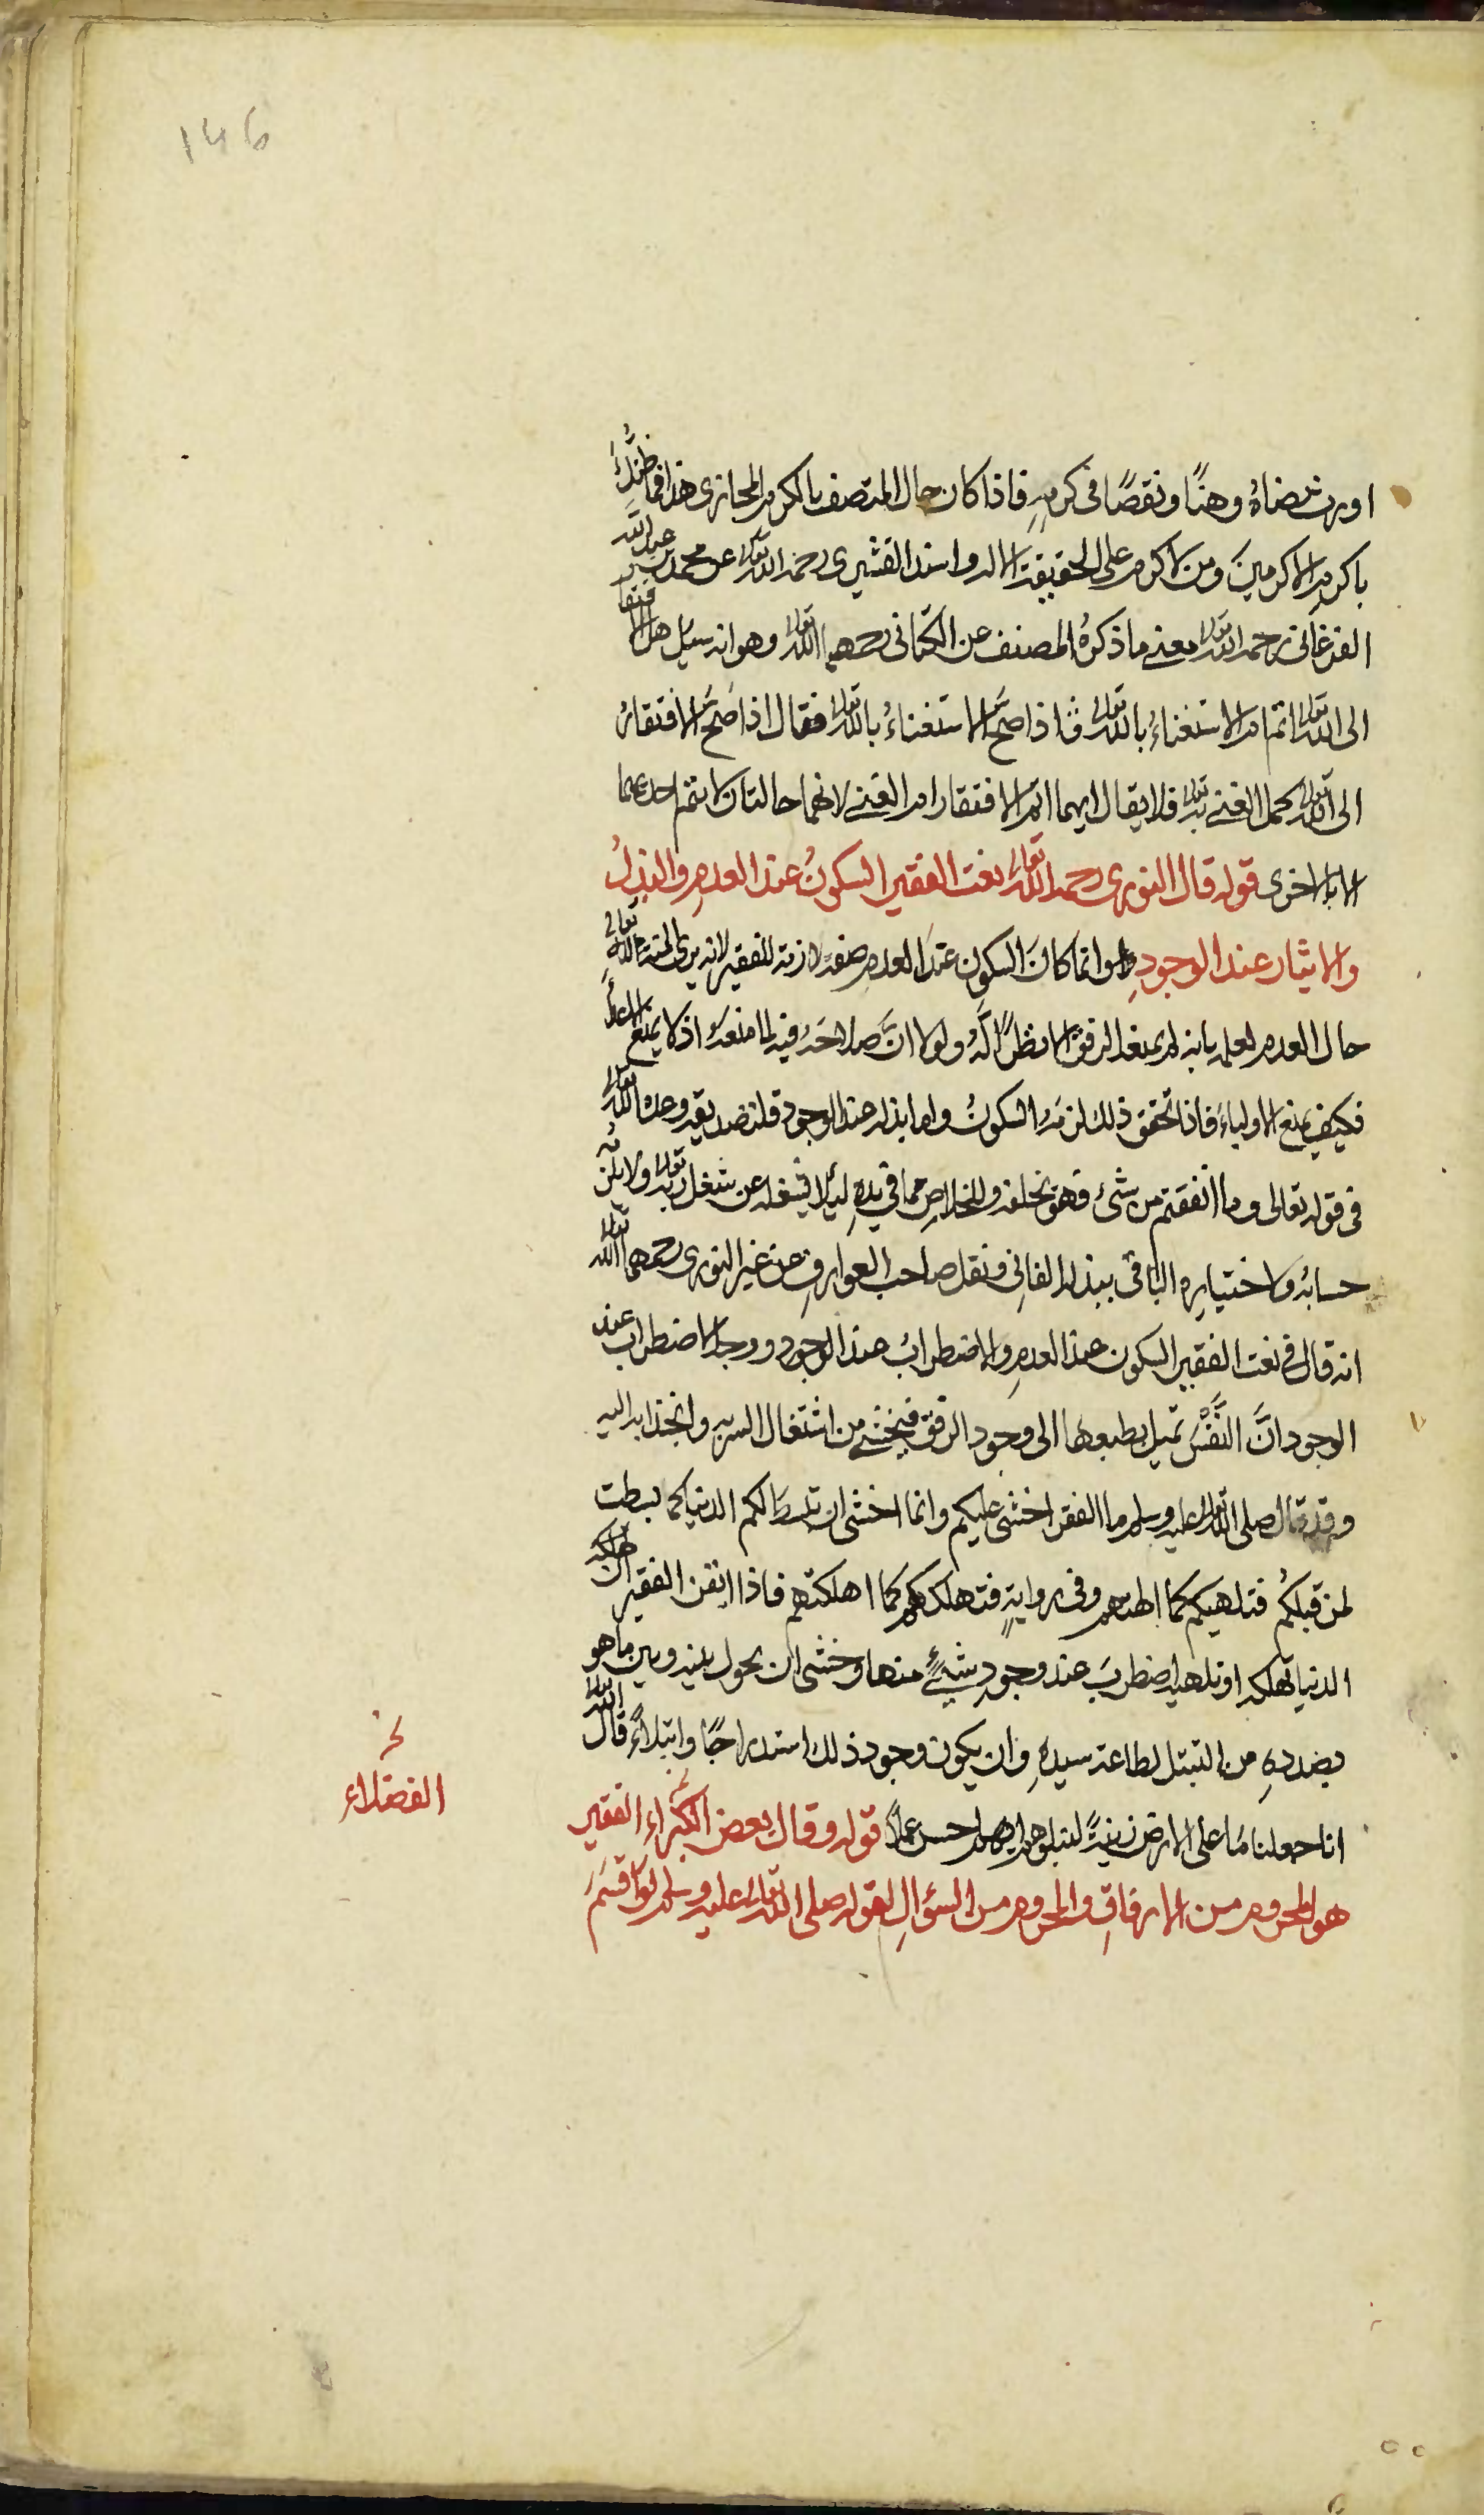 146
اورث غضاه وهنًا ونقصًا فى كرمه فاذا كان حال المتصف بالكرم المجازى هذا فما ظنك
باكرم الاكرمين ومن لا كرم على الحقيقة الا له واسند القشيرى رحمه الله تعالى عن محمد بن عبد الله
الفرغانى رحمه الله تعالى معنى ما ذكره المصنف عن الكتانى رحمهما الله تعالى وهو انه سئل هل الافتقار
الى الله تعالى اتم ام الاستغناء بالله تعالى فاذا صح الاستغناء بالله تعالى فقال اذا صح الافتقار
الى الله تعالى كمل الغنى به تعالى فلا يقال ايهما اتم الافتقار ام الغنى لانهما حالتان لا يتم احدهما
الا بالاخرى قوله قال النورى رحمه الله تعالى نعت الفقير السكون عند العدم والبذل
والايثار عند الوجود وانما كان السكون عند العدم صفة لازمة للفقير لانه يرى المنة لله تعالى
حال العدم لعلمه بانه لم يمنعه الرفق الا نظرًا له ولولا ان صلاحه فيه لما منعه اذ لا يمنع الاعداء
فكيف يمنع الاولياء فاذا تحقق ذلك لزمه السكون واما بذله عند الوجود فلتصديقه وعد الله تعالى
فى قوله تعالى وما انفقتم من شئ فهو يخلفه وللخلاص مما فى يده لئلا يشغله عن شغل ربه تعالى ولا يلزمه
حسابه واختياره الباقى ببذله الفانى ونقل صاحب العوارف عن غير النورى رحمهما الله تعالى
انه قال فى نعت الفقير السكون عند العدم والاضطراب عند الوجود ووجه الاضطراب عند
الوجود انَّ النَّفْسَ تميل بطبعها الى وجود الرفق فيخشى من اشتغال السر به وانجذابه اليه
وقد قال صلى الله تعالى عليه وسلم ما الفقر اخشى عليكم وانما اخشى ان تبسط لكم الدنيا كما بسطت
لمن قبلكم فتلهيكم كما الهتهم وفى رواية فتهلككم كما اهلكتهم فاذا ايقن الفقير ان
الدنيا تهلكه او تلهيه اضطرب عند وجود شئ منها وخشى ان يحول بينه وبين ما هو
بصدده من التبتل لطاعة سيده وان يكون وجود ذلك استدراجًا وابتلاءً قال الله تعالى
انا جعلنا ما على الارض زينة لها لنبلوهم ايهم احسن عملًا قوله وقال بعض الكبراء الفقير
هو المحروم من الارفاق والمحروم من السؤال لقوله صلى الله تعالى عليه وسلم لو اقسم
الفضلاء